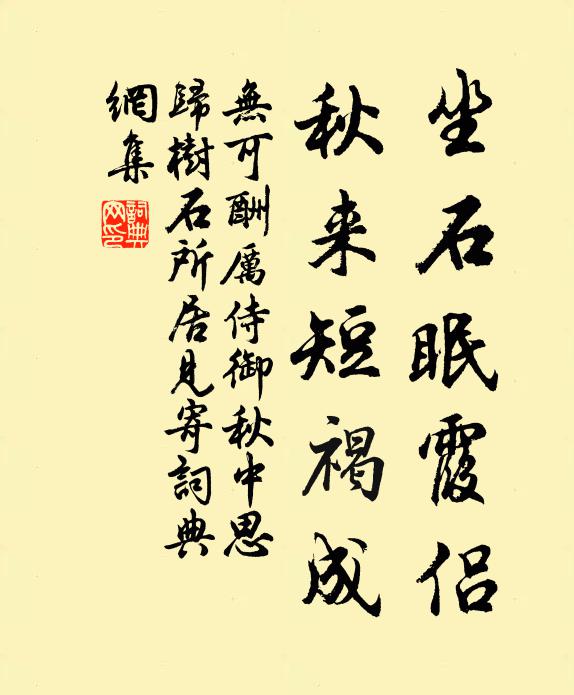 坐石眠霞侣
秋来短褐成
無可酬厲侍御秋中思
歸樹石所居見寄詞典
網集
詞典網印